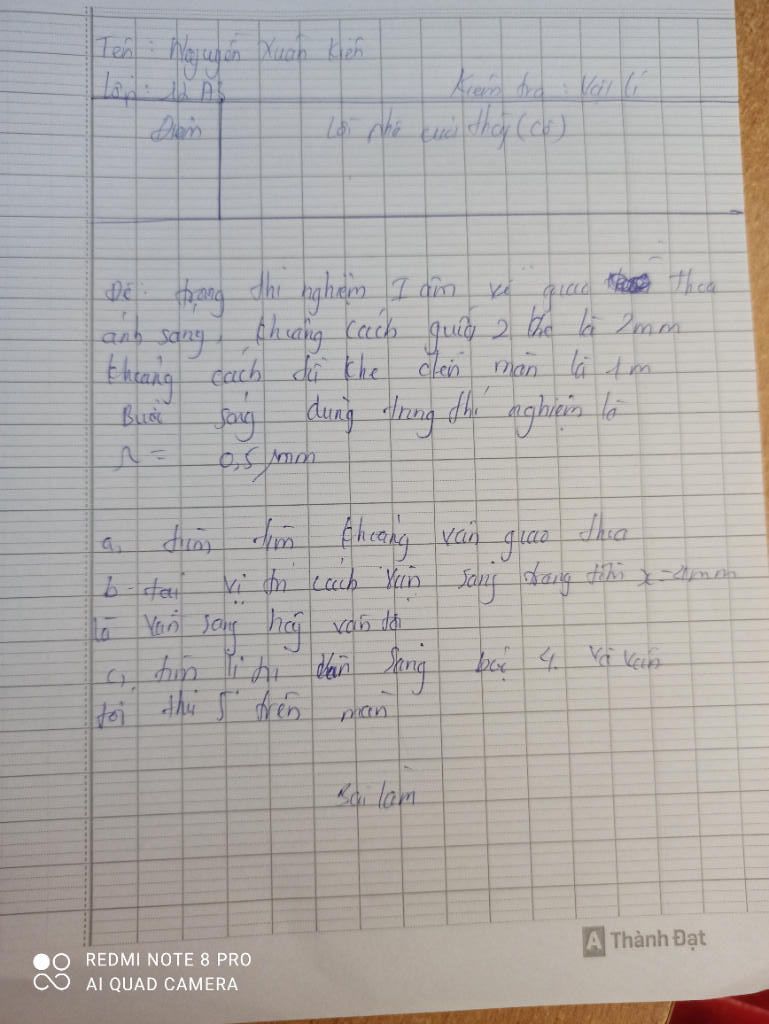 Tên : Nguyễn Xuân Kiên
Lớp : 12 A5 Kiểm tra : Vật lí
Điểm Lời phê của thầy (cô)
Đề: trong thí nghiệm I âm về giao thoa
ánh sáng, khoảng cách giữa 2 khe là 2mm
khoảng cách từ khe đến màn là 1m
Bước sóng dùng trong thí nghiệm là
λ = 0,5 μm
a, tìm khoảng vân giao thoa
b - tại vị trí cách vân sáng trung tâm x = 4mm
là vân sáng hay vân tối
c, tìm vị trí vân sáng bậc 4 và vân
tối thứ 5 trên màn
Bài làm
A Thành Đạt
REDMI NOTE 8 PRO
AI QUAD CAMERA